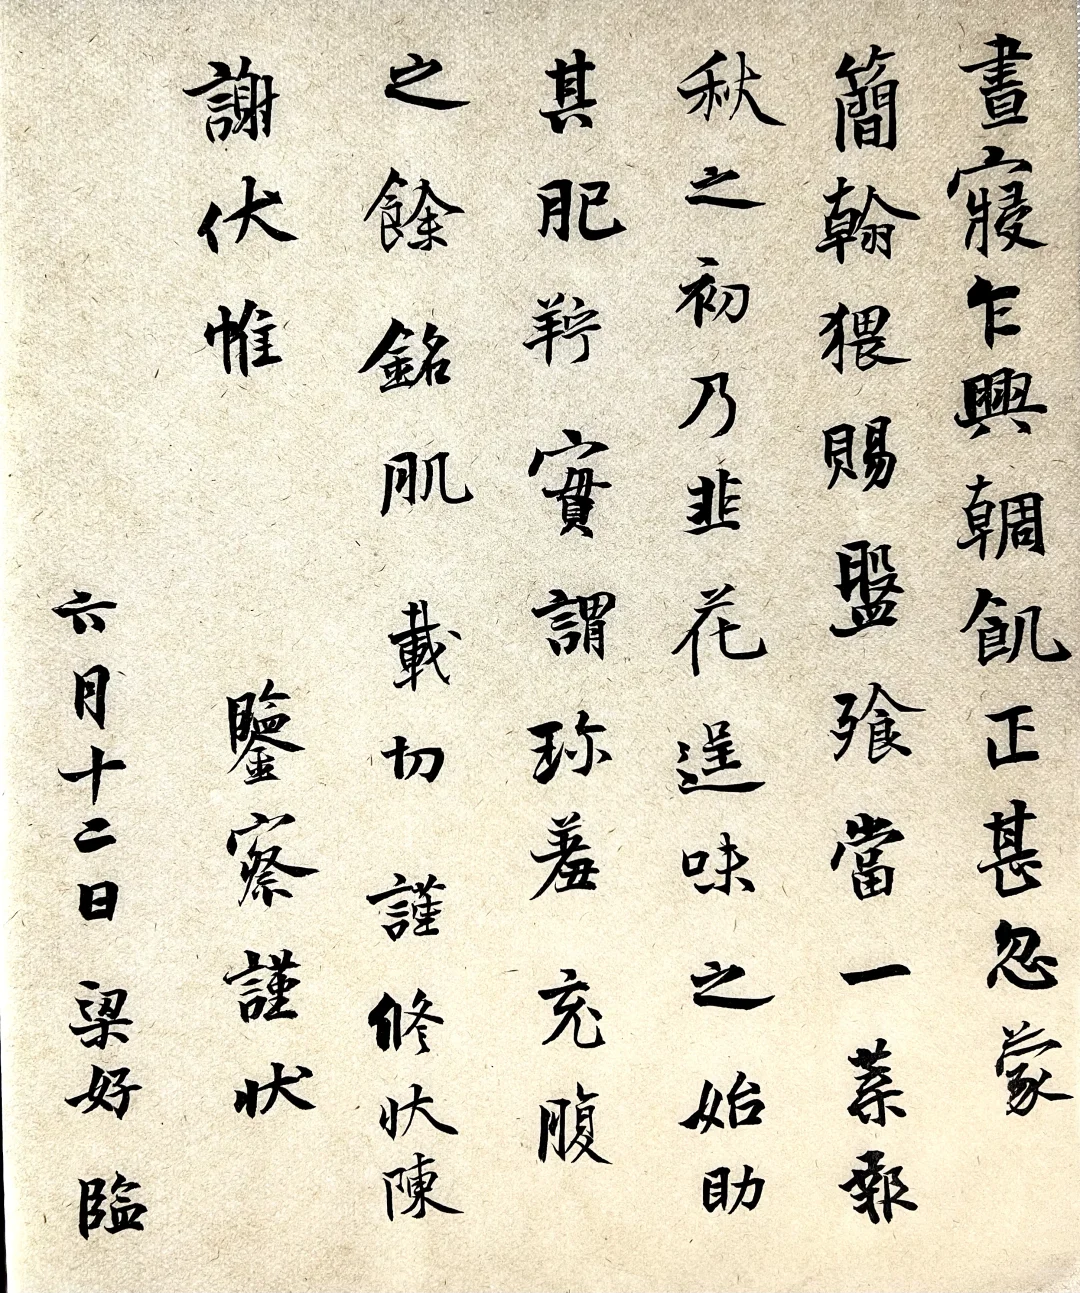 晝寢乍興輖飢正甚忽蒙
簡翰猥賜盤飧當一葉報
秋之初乃韭花逞味之始助
其肥羜實謂珎羞充腹
之餘銘肌載切謹修狀陳
謝伏惟鑒察謹狀
六月十二日梁好臨